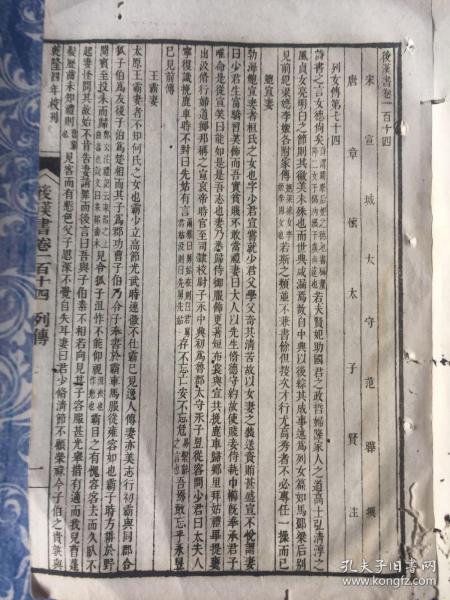 後漢書卷一百十四
宋宣城太守范曄撰
唐章懷太子賢注
列女傳第七十四
詩書之言女德尚矣若夫賢妃助國君之政哲婦隆家人之道高士弘清淳之
風貞女亮明白之節則其徽美未殊也而世典咸漏焉故自中興以後綜其成事述爲列女篇如馬鄧梁后別
見前紀梁嫕李姬各附家傳若斯之類並不兼書餘但搜次才行尤高秀者不必專在一操而已
鮑宣妻
勃海鮑宣妻者桓氏之女也字少君宣嘗就少君父學父奇其清苦故以女妻之裝送資賄甚盛宣不悅謂妻
曰少君生富驕習美飾而吾實貧賤不敢當禮妻曰大人以先生修德守約故使賤妾侍執巾櫛既奉承君子
唯命是從宣笑曰能如是是吾志也妻乃悉歸侍御服飾更著短布裳與宣共挽鹿車歸鄉里拜姑禮畢提甕
出汲修行婦道鄉邦稱之宣哀帝時官至司隸校尉子永中興初爲魯郡太守永子昱從容問少君曰太夫人
寧復識挽鹿車時不對曰先姑有言存不忘亡安不忘危吾焉敢忘乎永昱
已見前傳
王霸妻
太原王霸妻者不知何氏之女也霸少立高節光武時連徵不仕霸已見逸人傳妻亦美志行初霸與同郡令
狐子伯爲友後子伯爲楚相而其子爲郡功曹子伯乃令子奉書於霸車馬服從雍容如也霸子時方耕於野
聞賓至投耒而歸見令狐子沮怍不能仰視霸目之有愧容客去而久臥不
起妻怪問其故始不肯告妻請罪而後言曰吾與子伯素不相若向見其子容服甚光舉措有適而我兒曹蓬
髮歷齒未知禮則見客而有慙色父子恩深不覺自失耳妻曰君少修清節不顧榮祿今子伯之貴孰與
乾隆四年校刊
後漢書卷一百十四 列傳
一
孔夫子旧书网